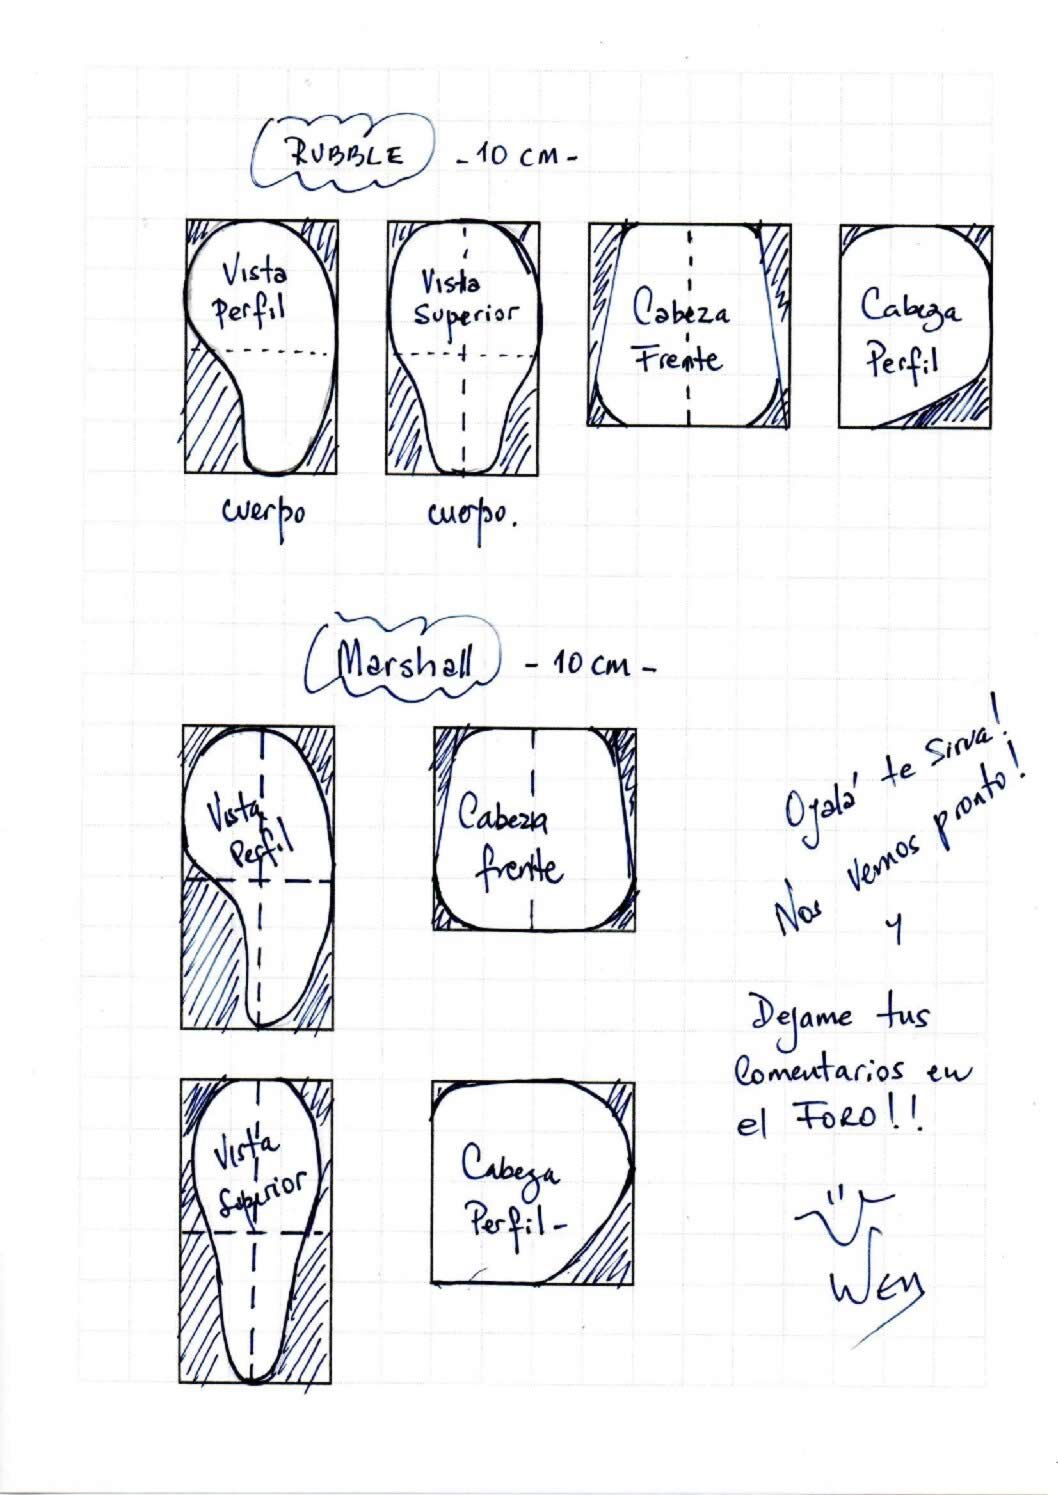 RUBBLE - 10 cm -
Vista
Perfil
Vista
Superior
Cabeza
Frente
Cabeza
Perfil
cuerpo
cuerpo.
Marshall - 10 cm -
Vista
Perfil
Cabeza
frente
Ojalá te Sirva!
Nos vemos pronto!
y
Dejame tus
Comentarios en
el FORO!!
Vista
Superior
Cabeza
Perfil-